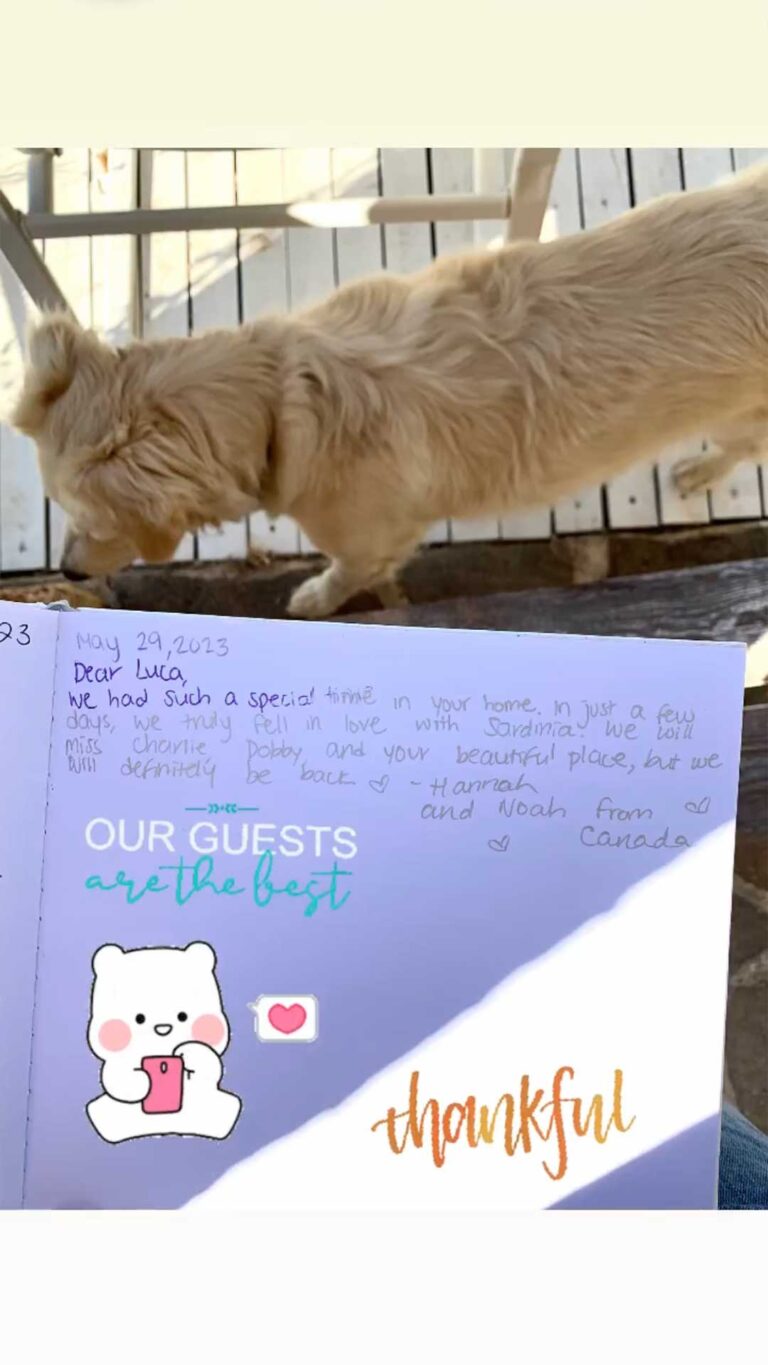 23
May 29, 2023
Dear Luca,
We had such a special time in your home. In just a few
days, we truly fell in love with Sardinia. We will
miss Charlie Dobby, and your beautiful place, but we
will definitely be back ♡ - Hannah
and Noah from ♡
♡ Canada
OUR GUESTS
are the best
thankful